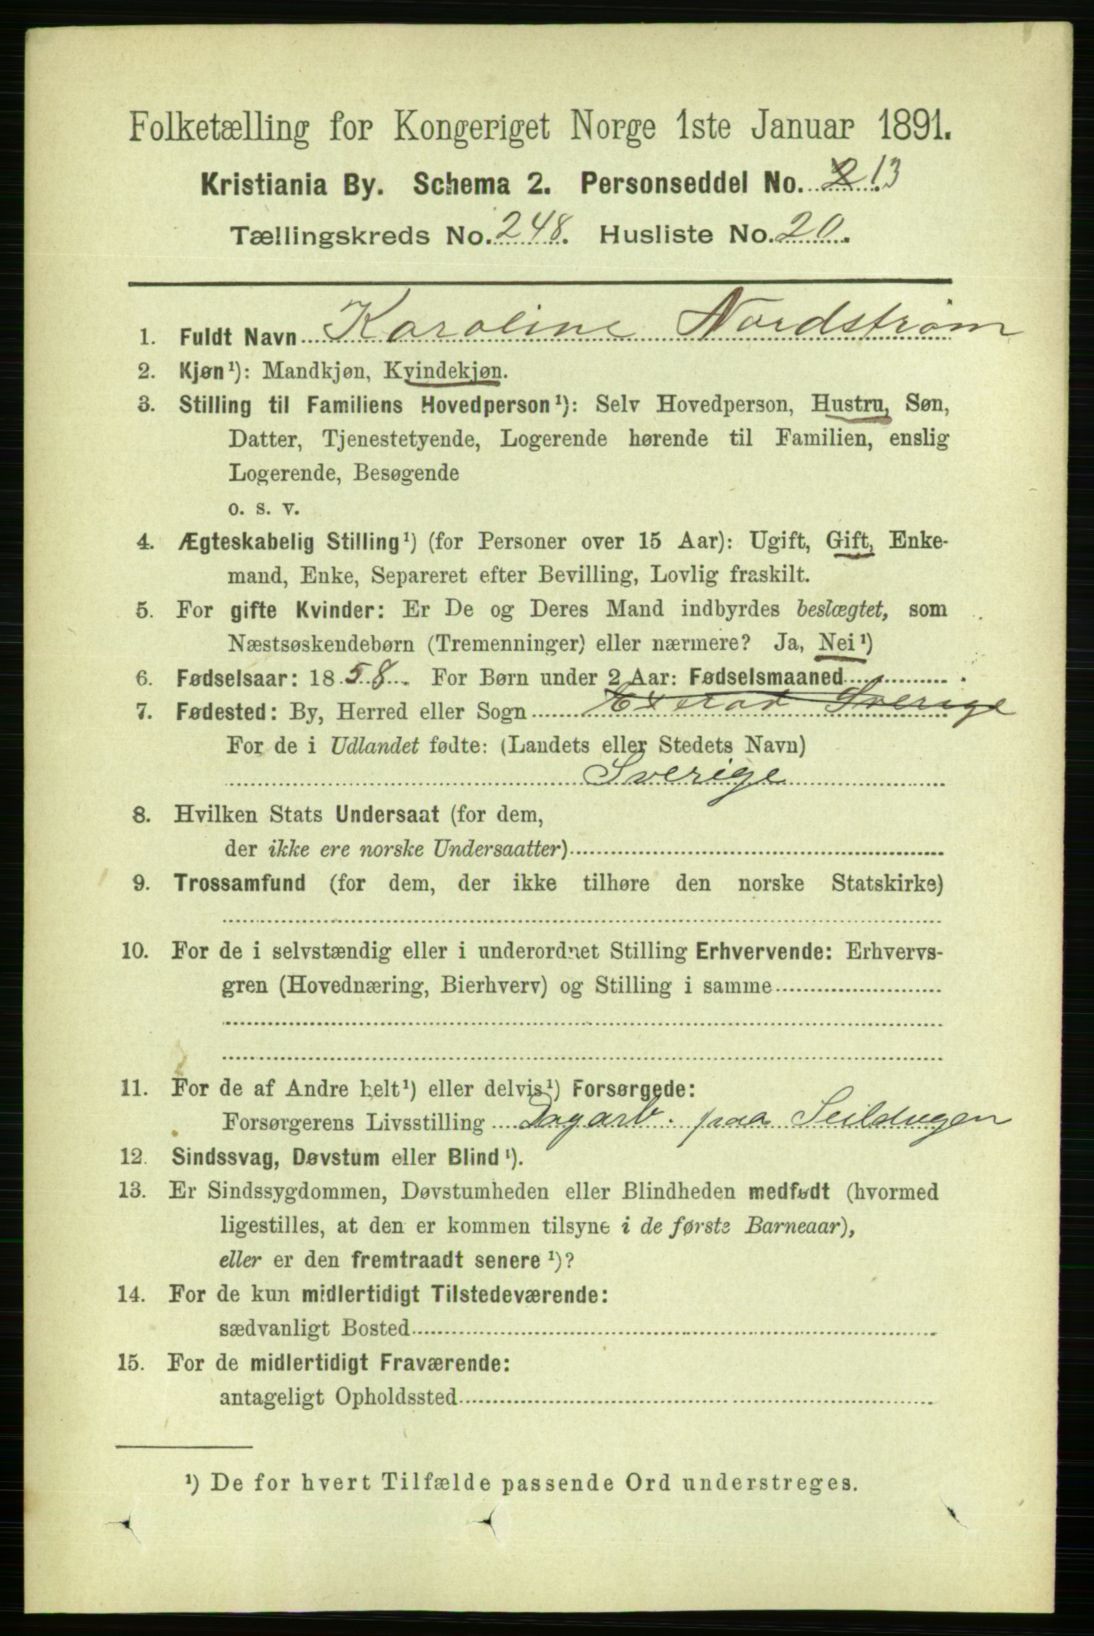 Folketælling for Kongeriget Norge 1ste Januar 1891.
Kristiania By. Schema 2. Personseddel No. 2 13
Tællingskreds No. 248. Husliste No. 20.
1. Fuldt Navn Karoline Nordstrøm
2. Kjøn¹): Mandkjøn, Kvindekjøn.
3. Stilling til Familiens Hovedperson¹): Selv Hovedperson, Hustru, Søn,
Datter, Tjenestetyende, Logerende hørende til Familien, enslig
Logerende, Besøgende
o. s. v.
4. Ægteskabelig Stilling¹) (for Personer over 15 Aar): Ugift, Gift, Enke-
mand, Enke, Separeret efter Bevilling, Lovlig fraskilt.
5. For gifte Kvinder: Er De og Deres Mand indbyrdes beslægtet, som
Næstsøskendebørn (Tremenninger) eller nærmere? Ja, Nei¹)
6. Fødselsaar: 1858. For Børn under 2 Aar: Fødselsmaaned
7. Fødested: By, Herred eller Sogn Sverige
For de i Udlandet fødte: (Landets eller Stedets Navn)
Sverige
8. Hvilken Stats Undersaat (for dem,
der ikke ere norske Undersaatter)
9. Trossamfund (for dem, der ikke tilhøre den norske Statskirke)
10. For de i selvstændig eller i underordnet Stilling Erhvervende: Erhvervs-
gren (Hovednæring, Bierhverv) og Stilling i samme
11. For de af Andre helt¹) eller delvis¹) Forsørgede:
Forsørgerens Livsstilling Dagarb. paa Seildugen
12. Sindssvag, Døvstum eller Blind¹).
13. Er Sindssygdommen, Døvstumheden eller Blindheden medfødt (hvormed
ligestilles, at den er kommen tilsyne i de første Barneaar),
eller er den fremtraadt senere¹)?
14. For de kun midlertidigt Tilstedeværende:
sædvanligt Bosted
15. For de midlertidigt Fraværende:
antageligt Opholdssted
¹) De for hvert Tilfælde passende Ord understreges.